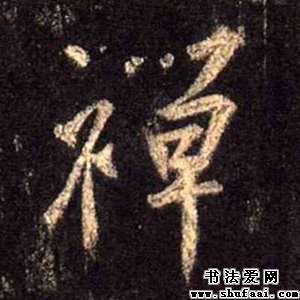 禅
书法爱网
www.shufaai.com